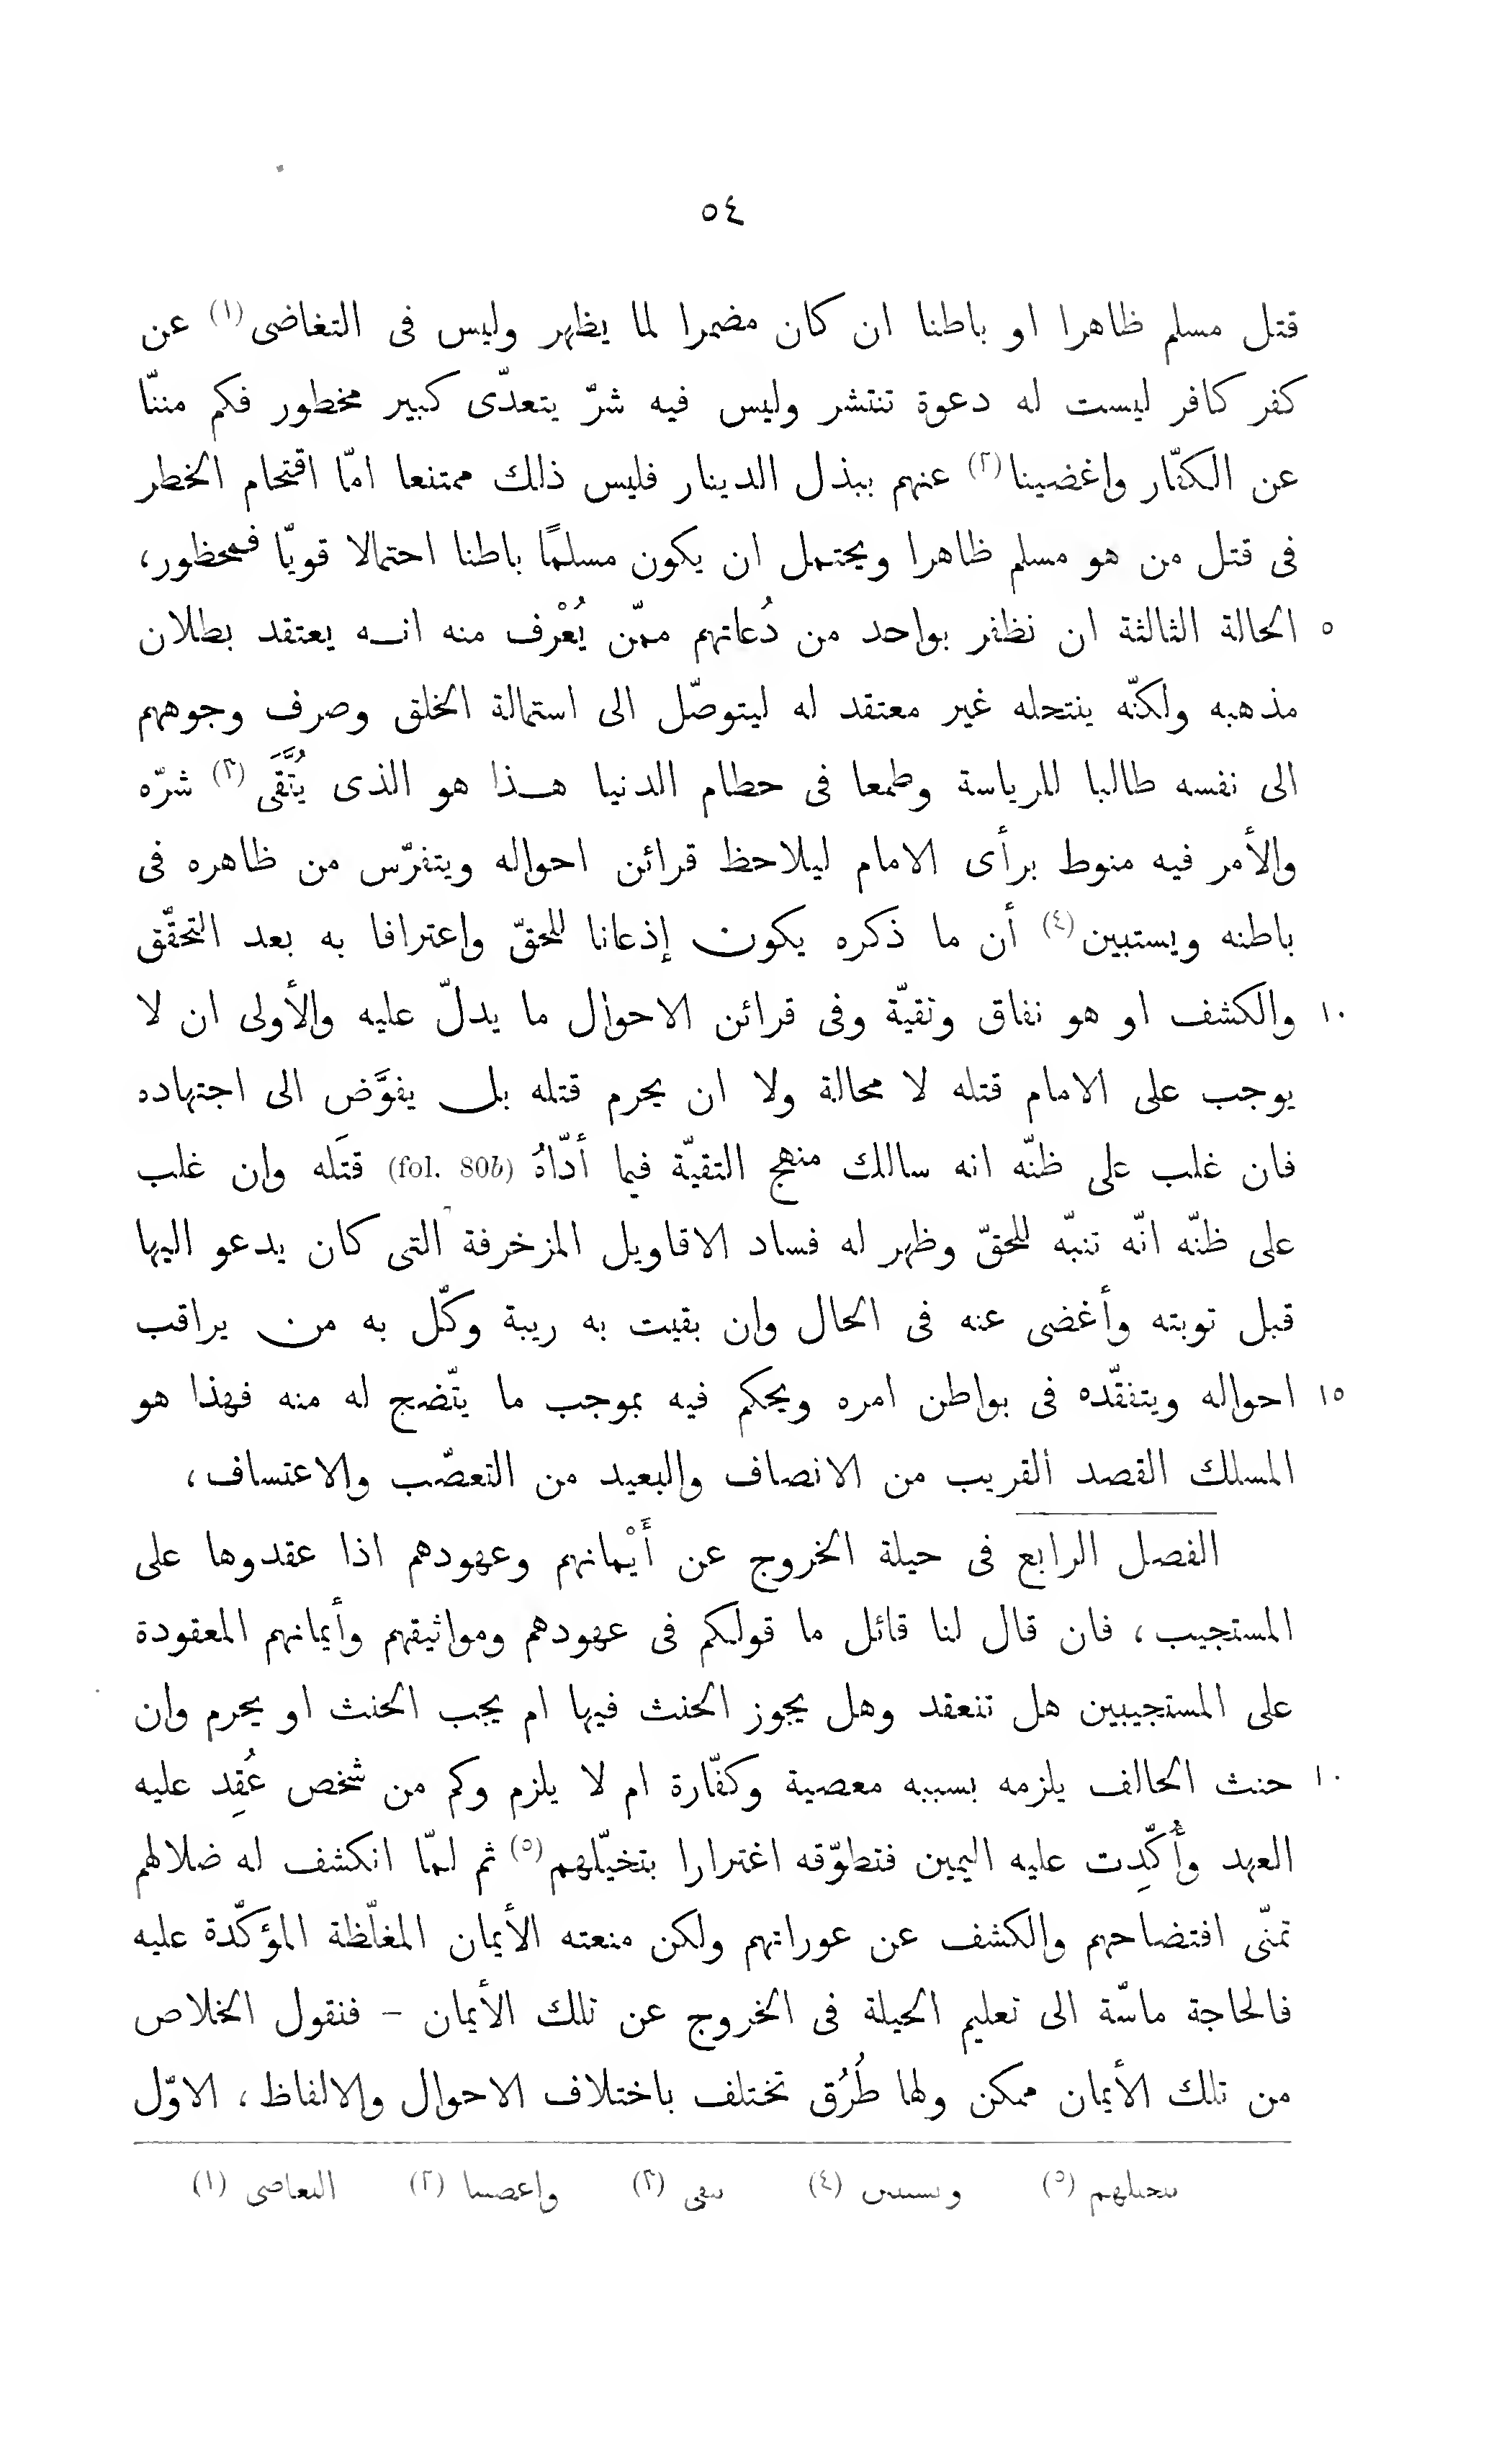 ٥٤
قتل مسلم ظاهرا او باطنا ان كان مضمرا لما يظهر وليس فى التغاضى(١) عن
كفر كافر ليست له دعوة تنتشر وليس فيه شرّ يتعدّى كبير مخطور فكم مننّا
عن الكفّار واغضينا(٢) عنهم ببذل الدينار فليس ذلك ممتنعا امّا اقتحام الخطر
فى قتل من هو مسلم ظاهرا ويحتمل ان يكون مسلمًا باطنا احتمالا قويّا فمحظور،
٥ الحالة الثالثة ان نظفر بواحد من دُعاتهم ممّن يُعْرف منه انه يعتقد بطلان
مذهبه ولكنّه ينتحله غير معتقد له ليتوصّل الى استمالة الخلق وصرف وجوههم
الى نفسه طالبا للرياسة وطمعا فى حطام الدنيا هذا هو الذى يُتَّقَى (٣) شرّه
والأمر فيه منوط برأى الامام ليلاحظ قرائن احواله ويتفرّس من ظاهره فى
باطنه ويستبين(٤) أن ما ذكره يكون إذعانا للحقّ واعترافا به بعد التحقّق
١٠ والكشف او هو نفاق وتقيّة وفى قرائن الاحوال ما يدلّ عليه والأولى ان لا
يوجب على الامام قتله لا محالة ولا ان يحرم قتله بل يفوَّض الى اجتهاده
فان غلب على ظنّه انه سالك منهج التقيّة فيما أدّاهُ (fol. 80b) قتَله وان غلب
على ظنّه انّه تنبّه للحقّ وظهر له فساد الاقاويل المزخرفة التى كان يدعو اليها
قبل توبته وأغضى عنه فى الحال وان بقيت به ريبة وكّل به من يراقب
١٥ احواله ويتفقّده فى بواطن امره ويحكم فيه بموجب ما يتّضح له منه فهذا هو
المسلك القصد القريب من الانصاف والبعيد من التعصّب والاعتساف،
الفصل الرابع فى حيلة الخروج عن أَيْمانهم وعهودهم اذا عقدوها على
المستجيب، فان قال لنا قائل ما قولكم فى عهودهم ومواثيقهم وأيمانهم المعقودة
على المستجيبين هل تنعقد وهل يجوز الحنث فيها ام يجب الحنث او يحرم وان
١٠ حنث الحالف يلزمه بسببه معصية وكفّارة ام لا يلزم وكم من شخص عُقِد عليه
العهد وأُكّدِت عليه اليمين فتطوّقه اغترارا بتخيّلهم(٥) ثم لمّا انكشف له ضلالهم
تمنّى افتضاحهم والكشف عن عوراتهم ولكن منعته الأيمان المغلّظة المؤكّدة عليه
فالحاجة ماسّة الى تعليم الحيلة فى الخروج عن تلك الأيمان – فنقول الخلاص
من تلك الأيمان ممكن ولها طُرُق تختلف باختلاف الاحوال والالفاظ، الاوّل
(١) (٢) (٣) (٤) (٥)